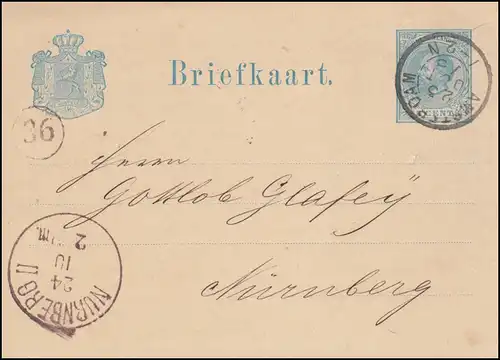 Briefkaart.
AMSTERDAM
36
Herrn
Gottlob Glafey
Nürnberg
NÜRNBERG II
24
10
2